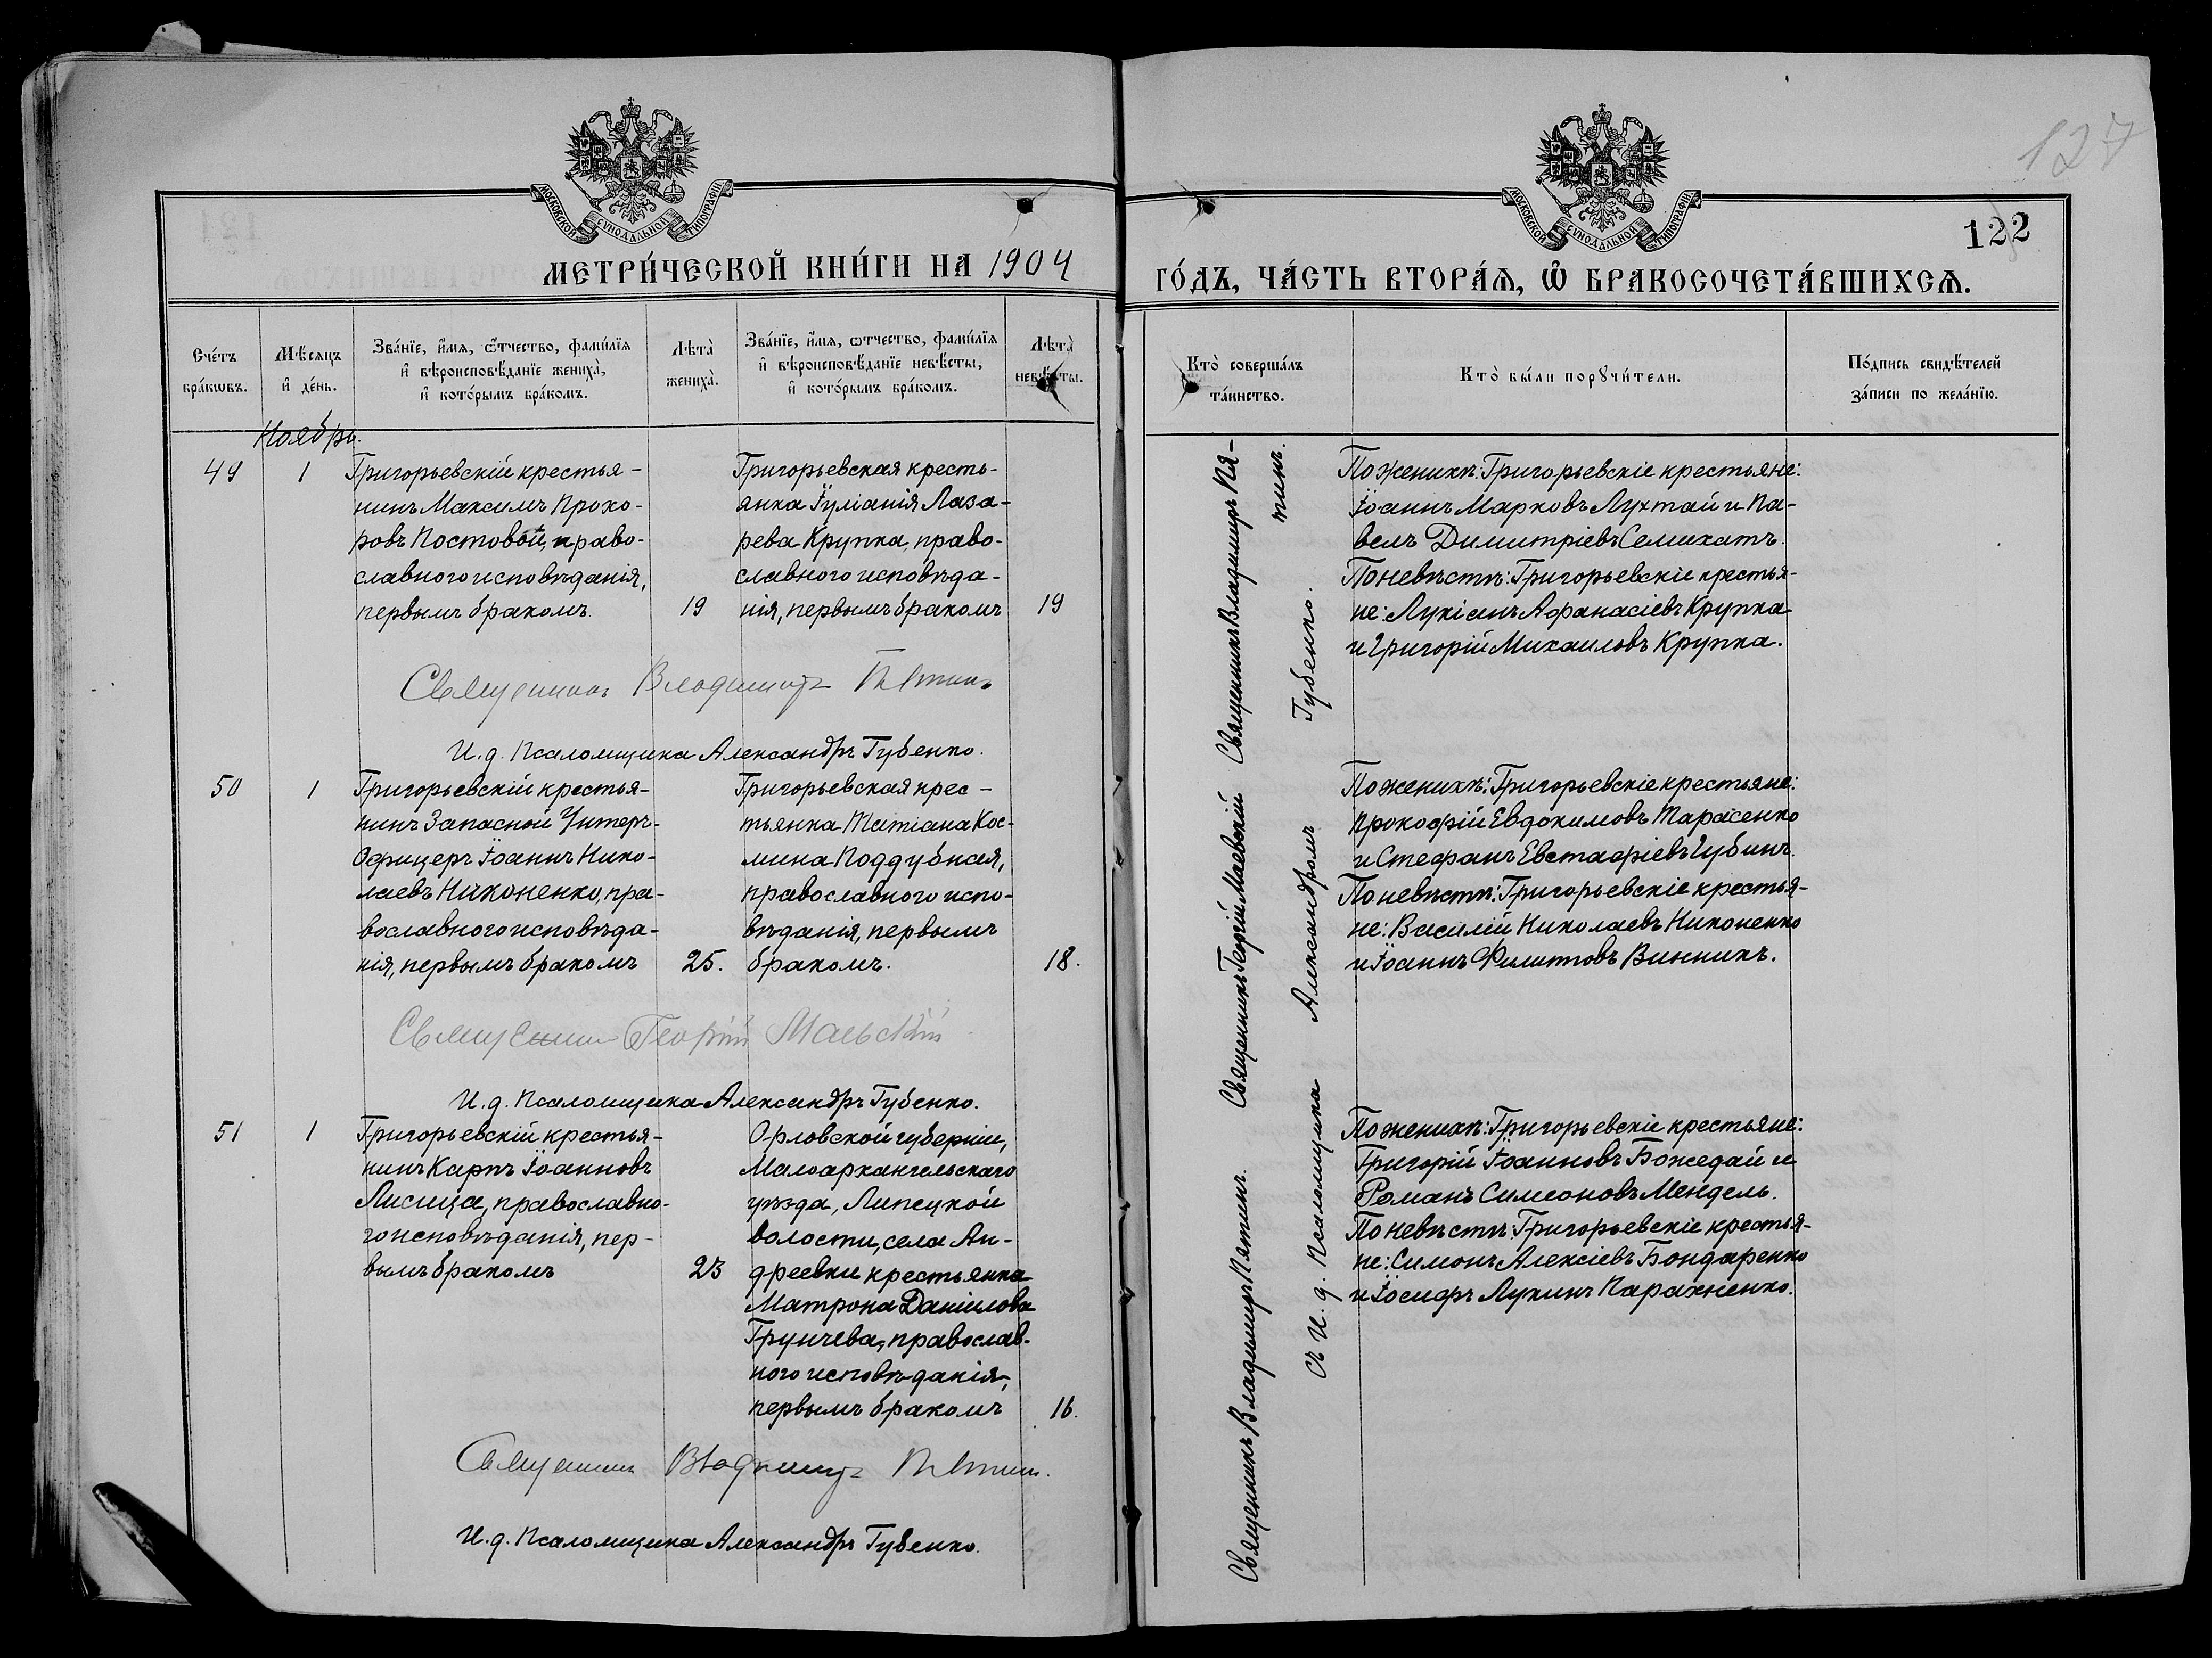 127
122
МОСКОВСКОЙ СѴНОДАЛЬНОЙ ТИПОГРАФІИ
МОСКОВСКОЙ СѴНОДАЛЬНОЙ ТИПОГРАФІИ
МЕТРИ́ЧЕСКОЙ КНИ́ГИ НА 1904
ГО́ДЪ, ЧА́СТЬ ВТОРА́Ѧ, Ѽ БРАКОСОЧЕТА́ВШИХСѦ.
Сче́тъ
бра́кѡвъ.
Мѣ́сяцъ
и҆ де́нь.
Зва́нїе, и҆́мѧ, ѻ҆́тчество, фамі́лїѧ
и҆ вѣроисповѣ́данїе жениха̀,
и҆ кото́рымъ бра́комъ.
Лѣта̀
жениха̀.
Зва́нїе, и҆́мѧ, ѻ҆тчество, фами́лїѧ
и҆ вѣроисповѣ́данїе невѣ́сты,
и҆ кото́рымъ бра́комъ.
Лѣта̀
невѣ́сты.
Кто̀ соверша́лъ
та́инство.
Кто̀ бы́ли порꙋчи́тели.
По́дпись свидѣ́телей
за́писи по жела́нїю.
Ноябрь.
49
1
Григорьевскій крестья-
нинъ Максимъ Прохо-
ровъ Постовой, право-
славного исповѣданія,
первымъ бракомъ.
19
Григорьевская кресть-
янка Іуліанія Лаза-
рева Крупка, право-
славного исповѣда-
нія, первымъ бракомъ
19
По женихѣ: Григорьевскіе крестьяне:
Іоаннъ Марковъ Лухтай и Па-
велъ Димитріевъ Семихатъ.
По невѣстѣ: Григорьевскіе крестья-
не: Лукіанъ Афанасіевъ Крупка
и Григорій Михаиловъ Крупка.
Священникъ Владимиръ Пятинъ
И. д. Псаломщика Александръ Губенко.
50
1
Григорьевскій крестья-
нинъ Запасной Унтеръ-
Офицеръ Іоаннъ Нико-
лаевъ Никоненко, пра-
вославного исповѣда-
нія, первымъ бракомъ
25.
Григорьевская крес-
тьянка Татіана Кос-
мина Поддубная,
православного испо-
вѣданія, первымъ
бракомъ.
18.
По женихѣ: Григорьевскіе крестьяне:
Прокофій Евдокимовъ Тарасенко
и Стефанъ Евстафіевъ Губинъ.
По невѣстѣ: Григорьевскіе крестья-
не: Василій Николаевъ Никоненко
и Іоаннъ Филиповъ Винникъ.
Священникъ Георгій Маевскій
И. д. Псаломщика Александръ Губенко.
51
1
Григорьевскій крестья-
нинъ Карпъ Іоанновъ
Лисица, православно-
го исповѣданія, пер-
вымъ бракомъ
23
Орловской губерніи,
Малоархангельскаго
уѣзда, Липецкой
волости, села Ан-
дреевки крестьянка
Матрона Даніилова
Грунчева, православ-
ного исповѣданія,
первымъ бракомъ
16.
По женихѣ: Григорьевскіе крестьяне:
Григорій Іоанновъ Божедай и
Романъ Симеоновъ Мендель.
По невѣстѣ: Григорьевскіе крестья-
не: Симонъ Алексіевъ Бондаренко
и Іосифъ Лукинъ Парахненко.
Священникъ Владимиръ Пятинъ.
И. д. Псаломщика Александръ Губенко.
Священникъ Владимиръ Пятинъ. Священникъ Георгій Маевскій Священникъ Владимиръ Пя-
тинъ.
съ И. д. Псаломщика Александромъ Губенко.